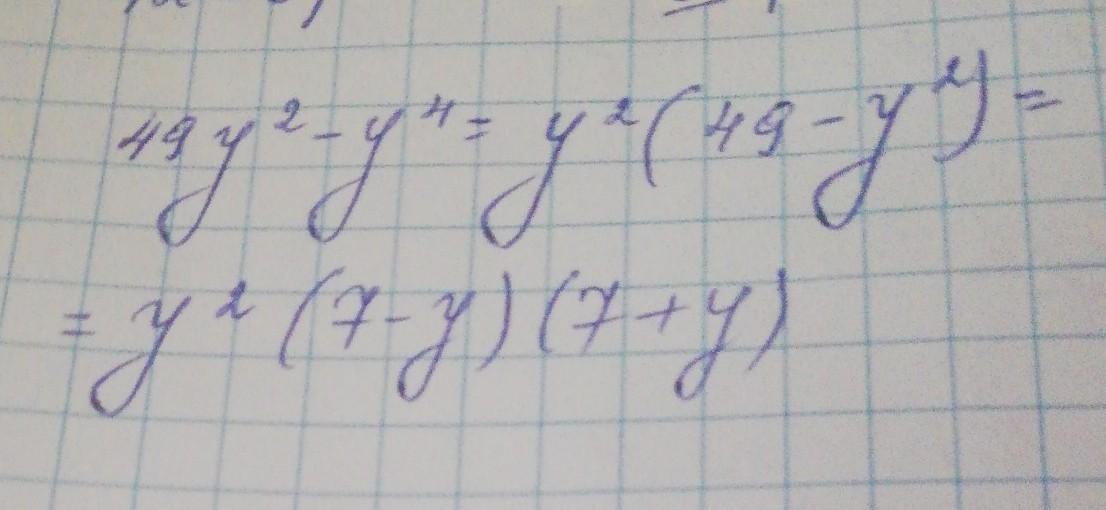 49y² - y⁴ = y²(49 - y²) =
= y²(7 - y)(7 + y)